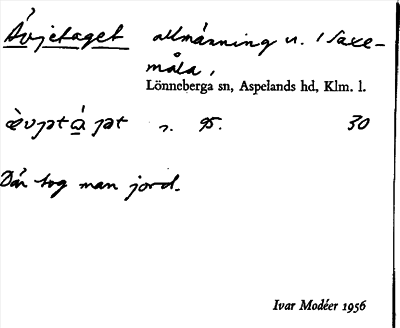 Ävjetaget allmänning n. i Saxe-
måla,
Lönneberga sn, Aspelands hd, Klm. l.
n. 95. 30
Där tog man jord.
Ivar Modéer 1956